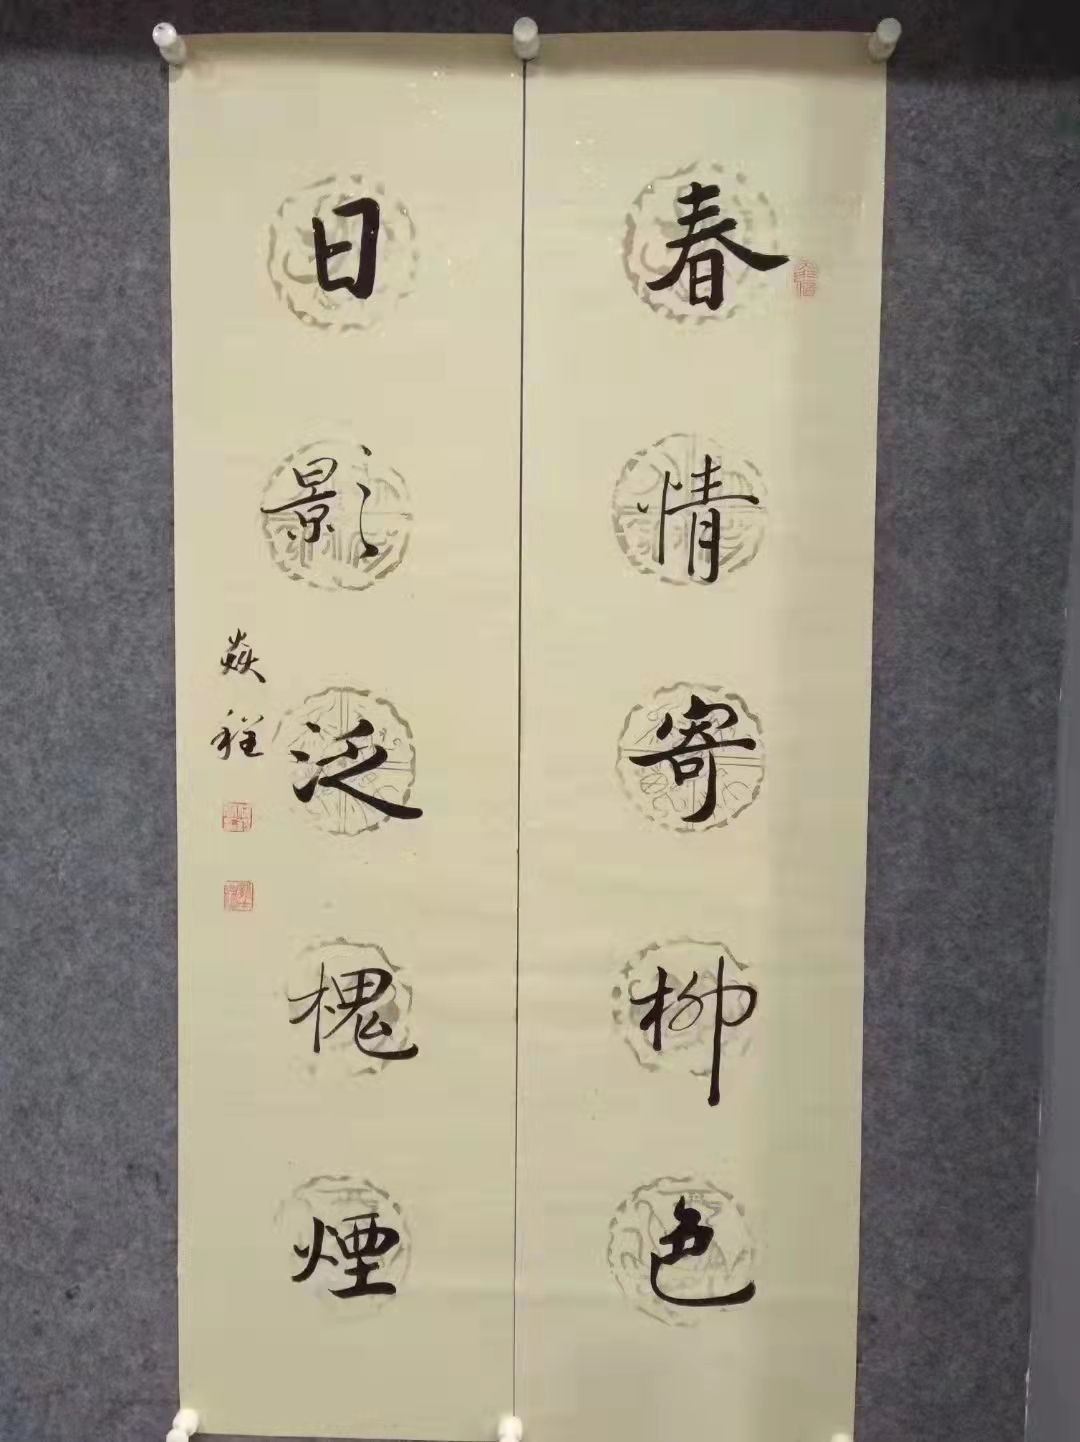 春情寄柳色
日影泛槐煙
焱程